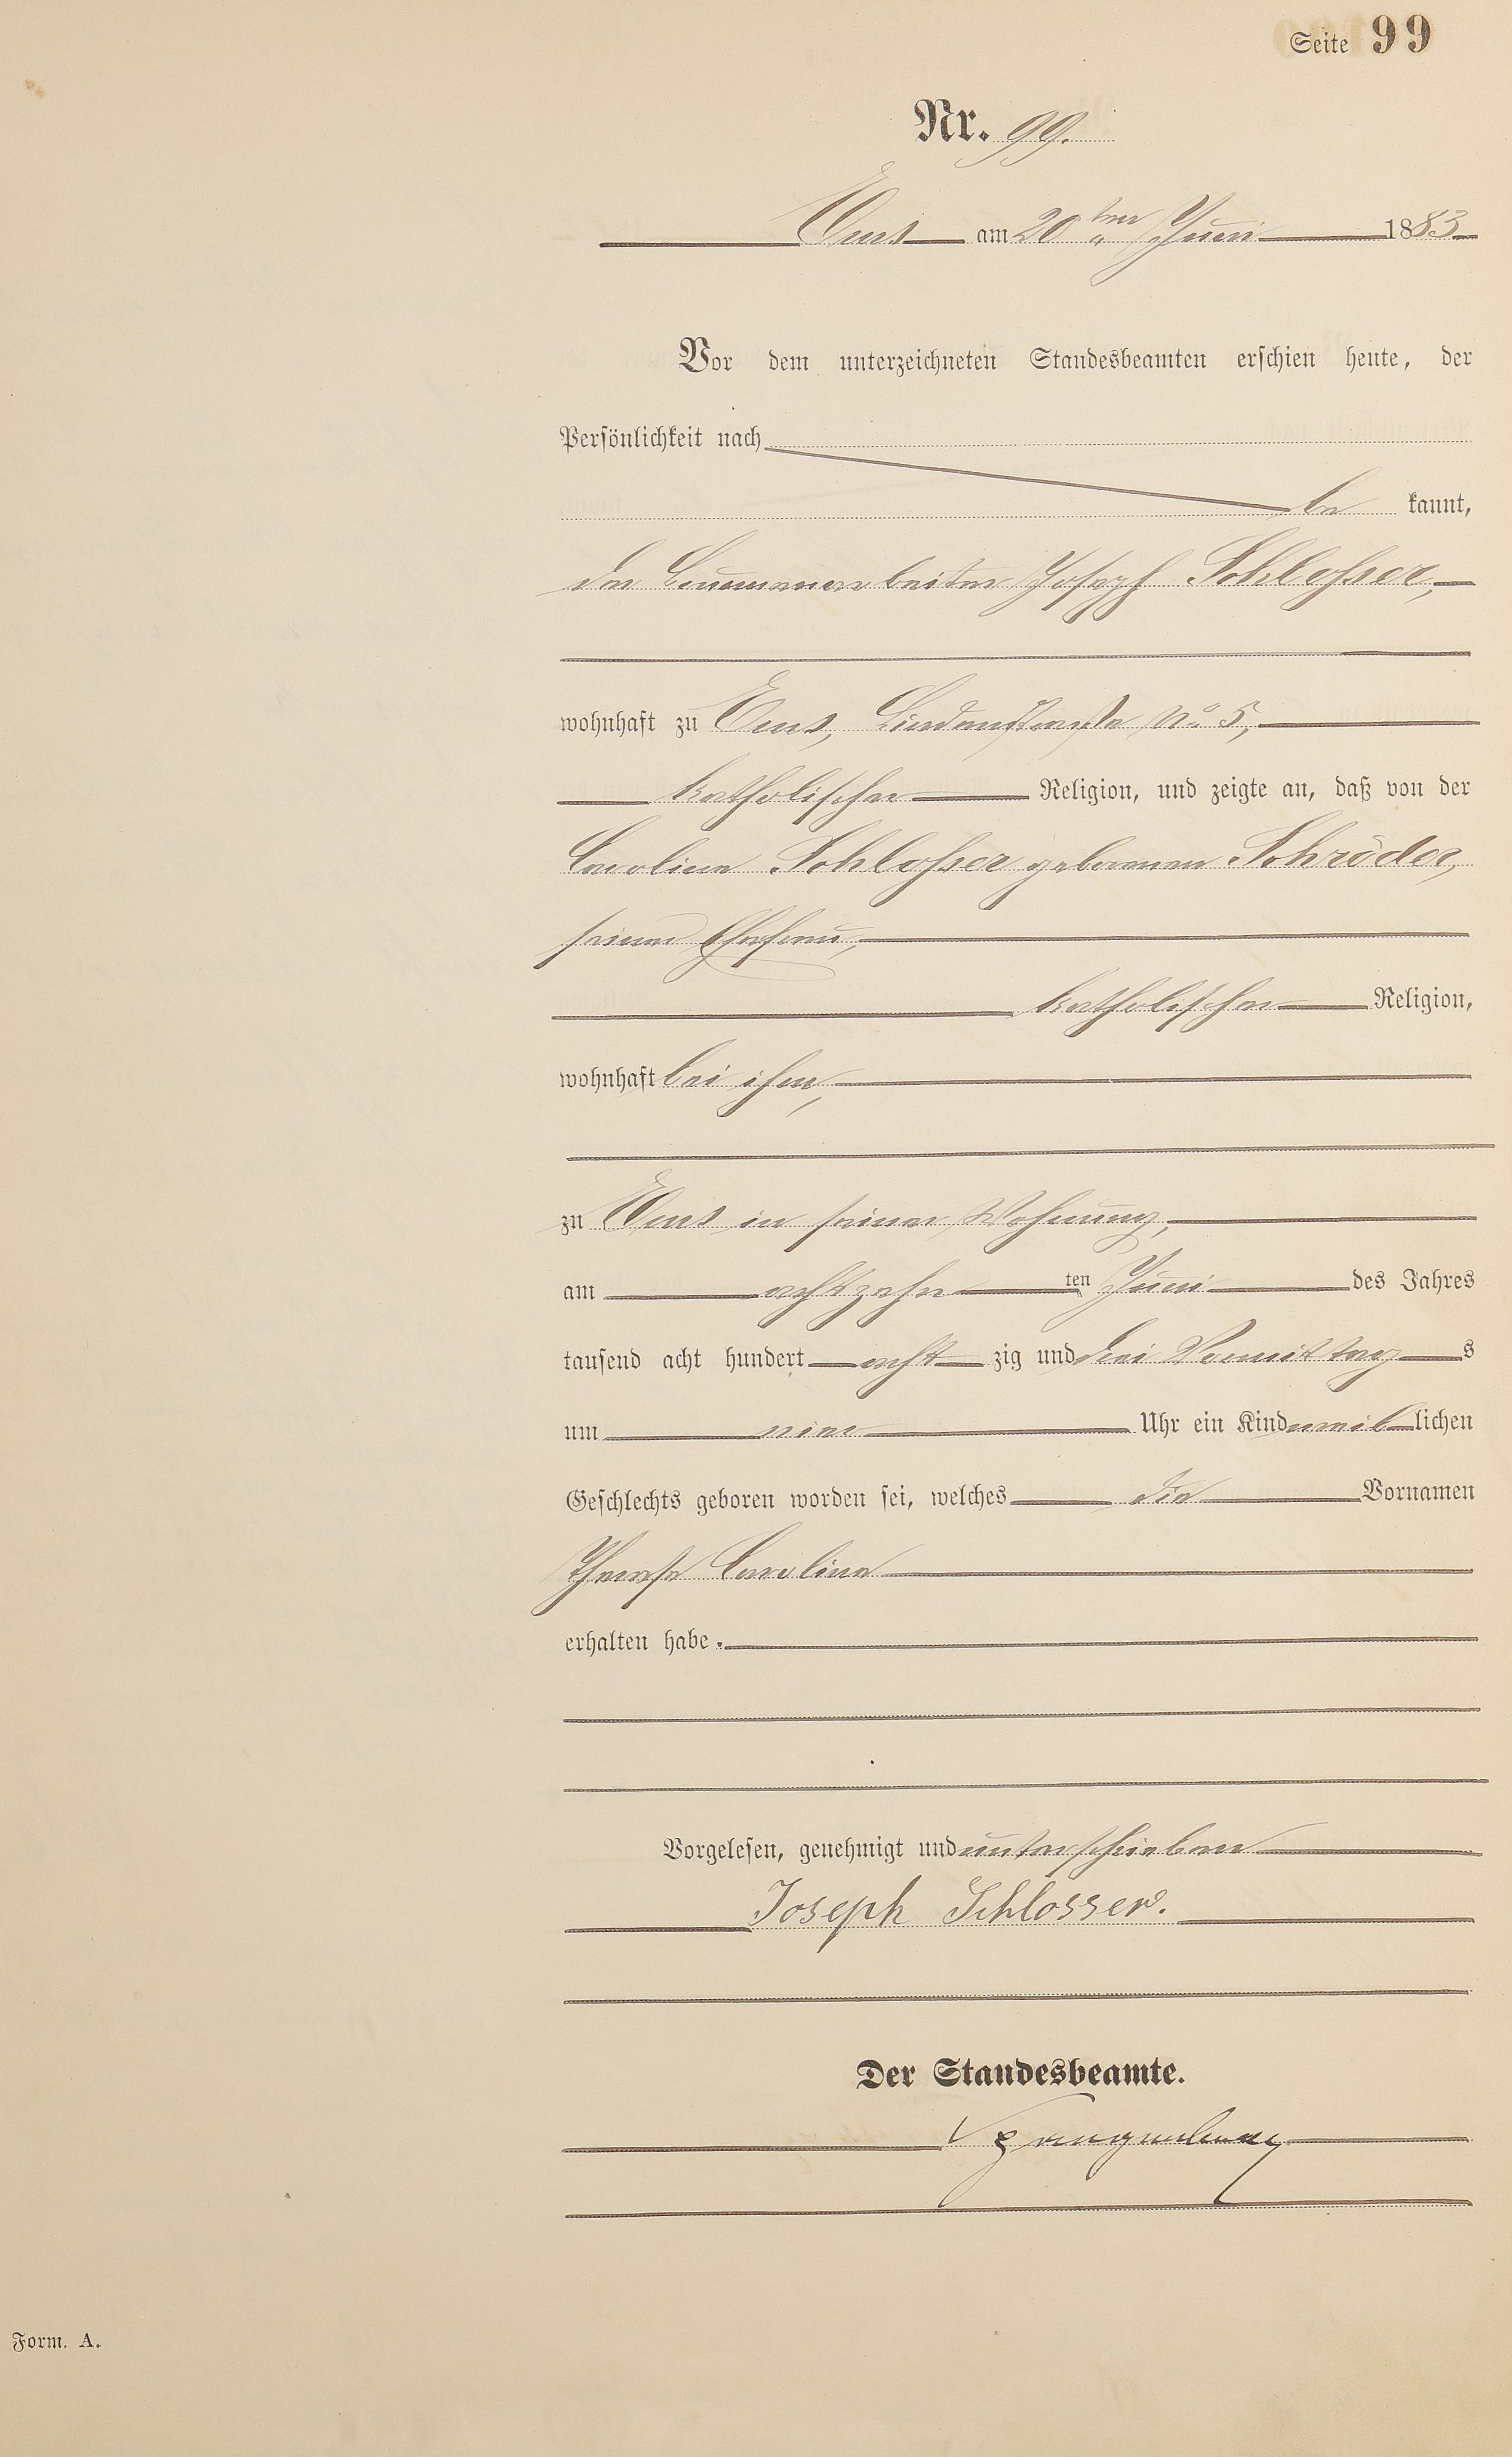 Seite 99
Nr. 99.
Ems am 20ten Juni 1883
Vor dem unterzeichneten Standesbeamten erschien heute, der
Persönlichkeit nach
be kannt,
der Brunnenarbeiter Joseph Schlosser,
wohnhaft zu Ems, Lindenstraße No 5,
katholischer Religion, und zeigte an, daß von der
Caroline Schlosser geborenen Schröder,
seiner Ehefrau,
katholischer Religion,
wohnhaft bei ihm,
zu Ems in seiner Wohnung,
am achtzehn ten Juni des Jahres
tausend acht hundert acht zig und drei Vormittag s
um vier Uhr ein Kind weib lichen
Geschlechts geboren worden sei, welches die Vornamen
Therese Caroline
erhalten habe.
Vorgelesen, genehmigt und unterschrieben
Joseph Schlosser.
Der Standesbeamte.
Form. A.